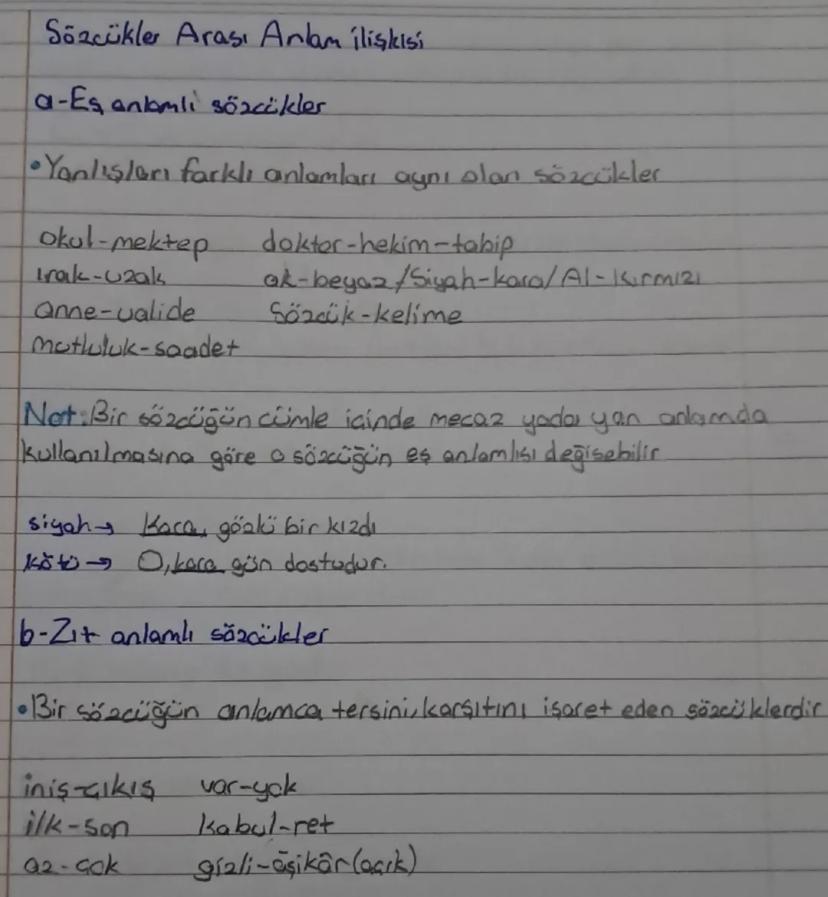 Sözcükler Arası Anlam ilişkisi
a-Eş anlamlı sözcükler
•Yanlışları farklı anlamları aynı olan sözcükler
okul-mektep doktor-hekim-tabip
ırak-uzak ak-beyaz/Siyah-kara/Al-kırmızı
anne-valide Sözcük-kelime
mutluluk-saadet
Not:Bir sözcüğün cümle içinde mecaz yada yan anlamda
kullanılmasına göre o sözcüğün eş anlamlısı değişebilir
siyah→ Kara, gözlü bir kızdı
kötü→ O,kara gün dostudur.
b-Zıt anlamlı sözcükler
•Bir sözcüğün anlamca tersini,karşıtını işaret eden sözcüklerdir
iniş-çıkış var-yok
ilk-son kabul-ret
az-çok gizli-âşikâr(açık)